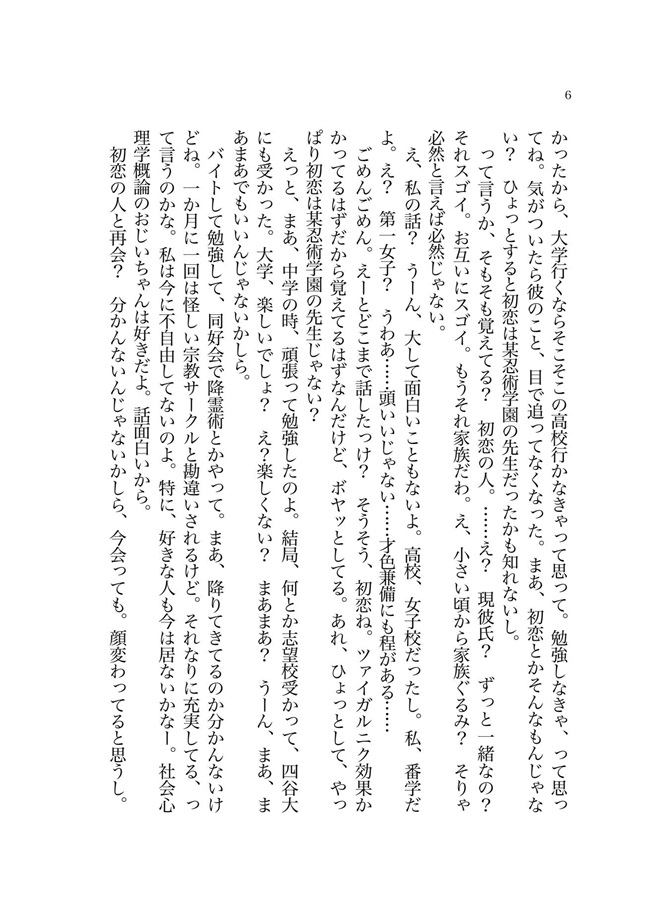 6
かったから、大学行くならそこそこの高校行かなきゃって思って。勉強しなきゃ、って思っ
てね。気がついたら彼のこと、目で追ってなくなった。まあ、初恋とかそんなもんじゃな
い？　ひょっとすると初恋は某忍術学園の先生だったかも知れないし。
　って言うか、そもそも覚えてる？　初恋の人。……え？　現彼氏？　ずっと一緒なの？
それスゴイ。お互いにスゴイ。もうそれ家族だわ。え、小さい頃から家族ぐるみ？　そりゃ
必然と言えば必然じゃない。
　え、私の話？　うーん、大して面白いこともないよ。高校、女子校だったし。私、番学だ
よ。え？　第一女子？　うわあ……頭いいじゃない……才色兼備にも程がある……
　ごめんごめん。えーとどこまで話したっけ？　そうそう、初恋ね。ツァイガルニク効果か
かってるはずだから覚えてるはずなんだけど、ボヤッとしてる。あれ、ひょっとして、やっ
ぱり初恋は某忍術学園の先生じゃない？
　えっと、まあ、中学の時、頑張って勉強したのよ。結局、何とか志望校受かって、四谷大
にも受かった。大学、楽しいでしょ？　え？楽しくない？　まあまあ？　うーん、まあ、ま
あまあでもいいんじゃないかしら。
　バイトして勉強して、同好会で降霊術とかやって。まあ、降りてきてるのか分かんないけ
どね。一か月に一回は怪しい宗教サークルと勘違いされるけど。それなりに充実してる、っ
て言うのかな。私は今に不自由してないのよ。特に、好きな人も今は居ないかなー。社会心
理学概論のおじいちゃんは好きだよ。話面白いから。
　初恋の人と再会？　分かんないんじゃないかしら、今会っても。顔変わってると思うし。